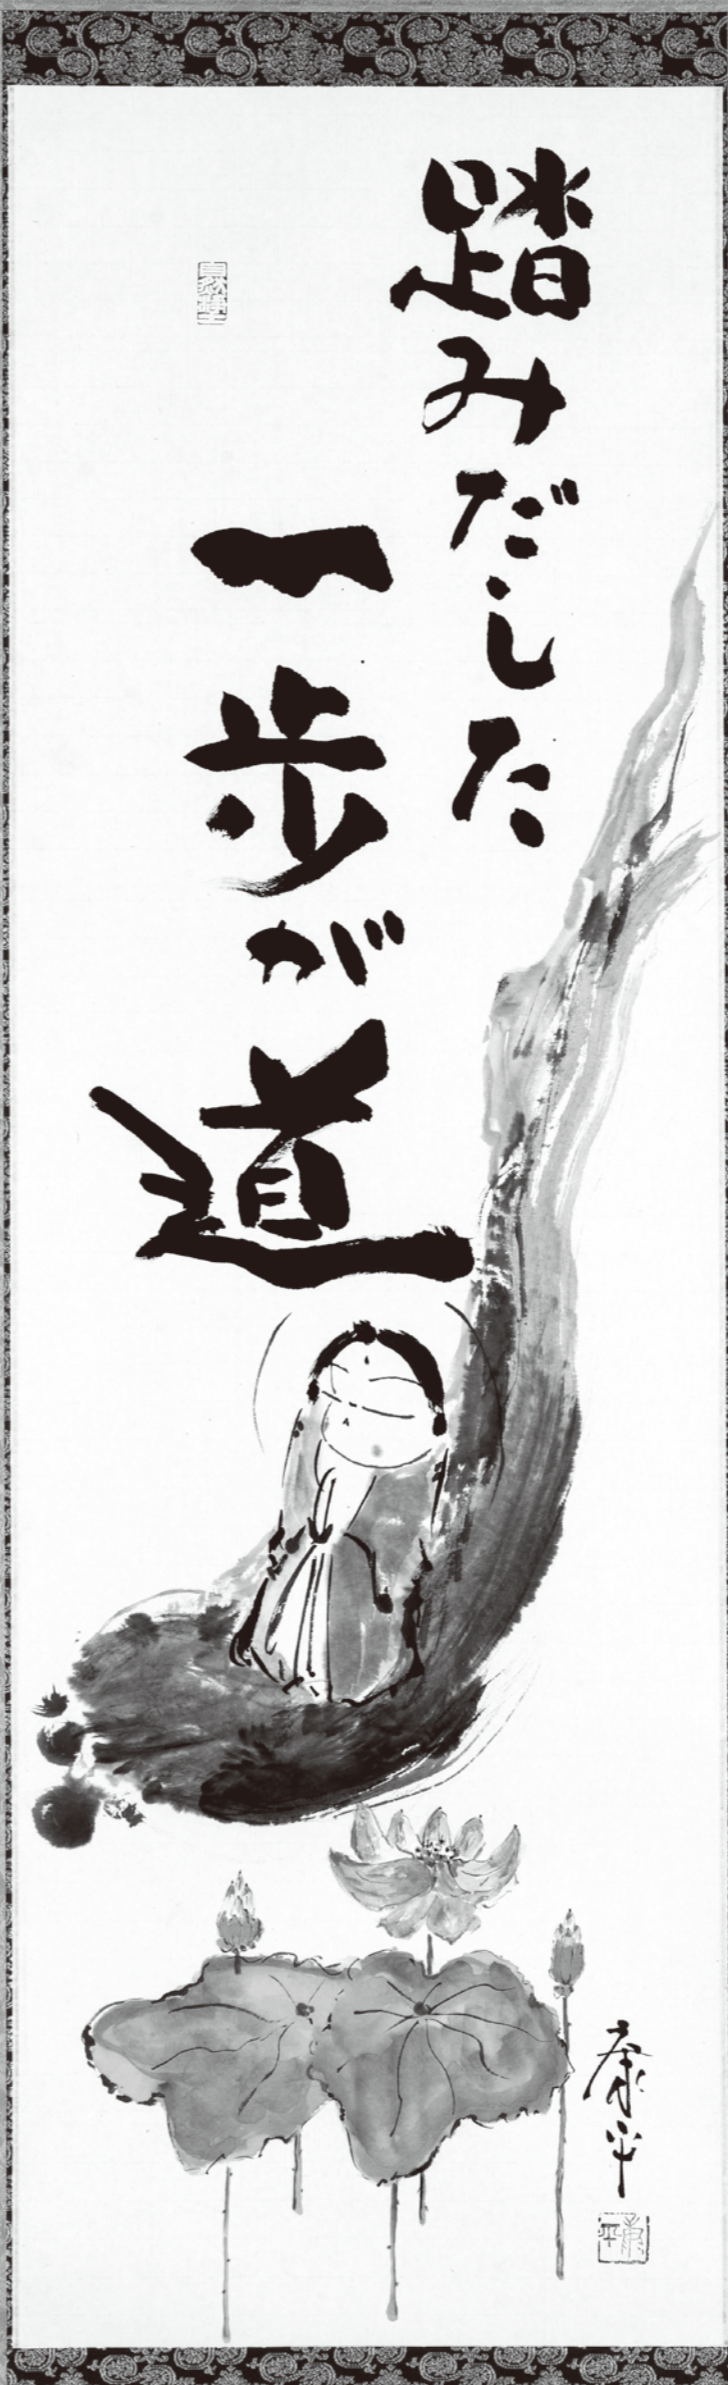 踏みだした
一歩が
道
康平
康平